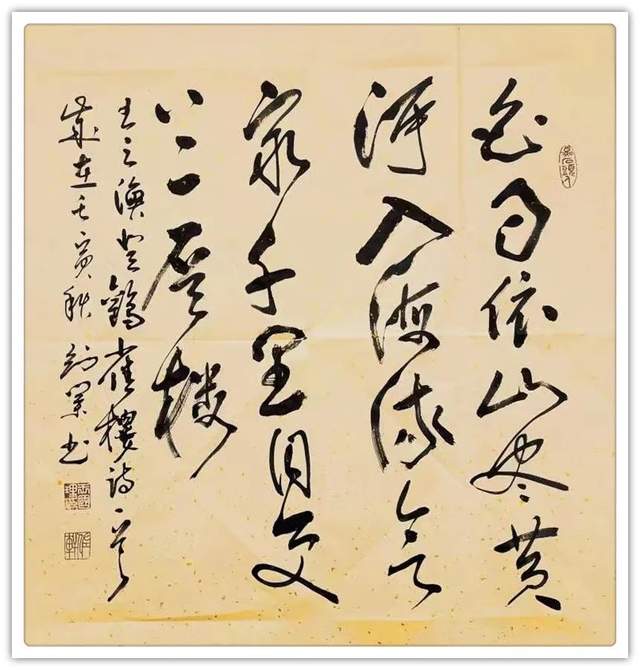 白日依山尽黄
河入海流欲
穷千里目更
上一层楼
王之涣登鹳雀樓诗一首
歲在壬寅秋 书